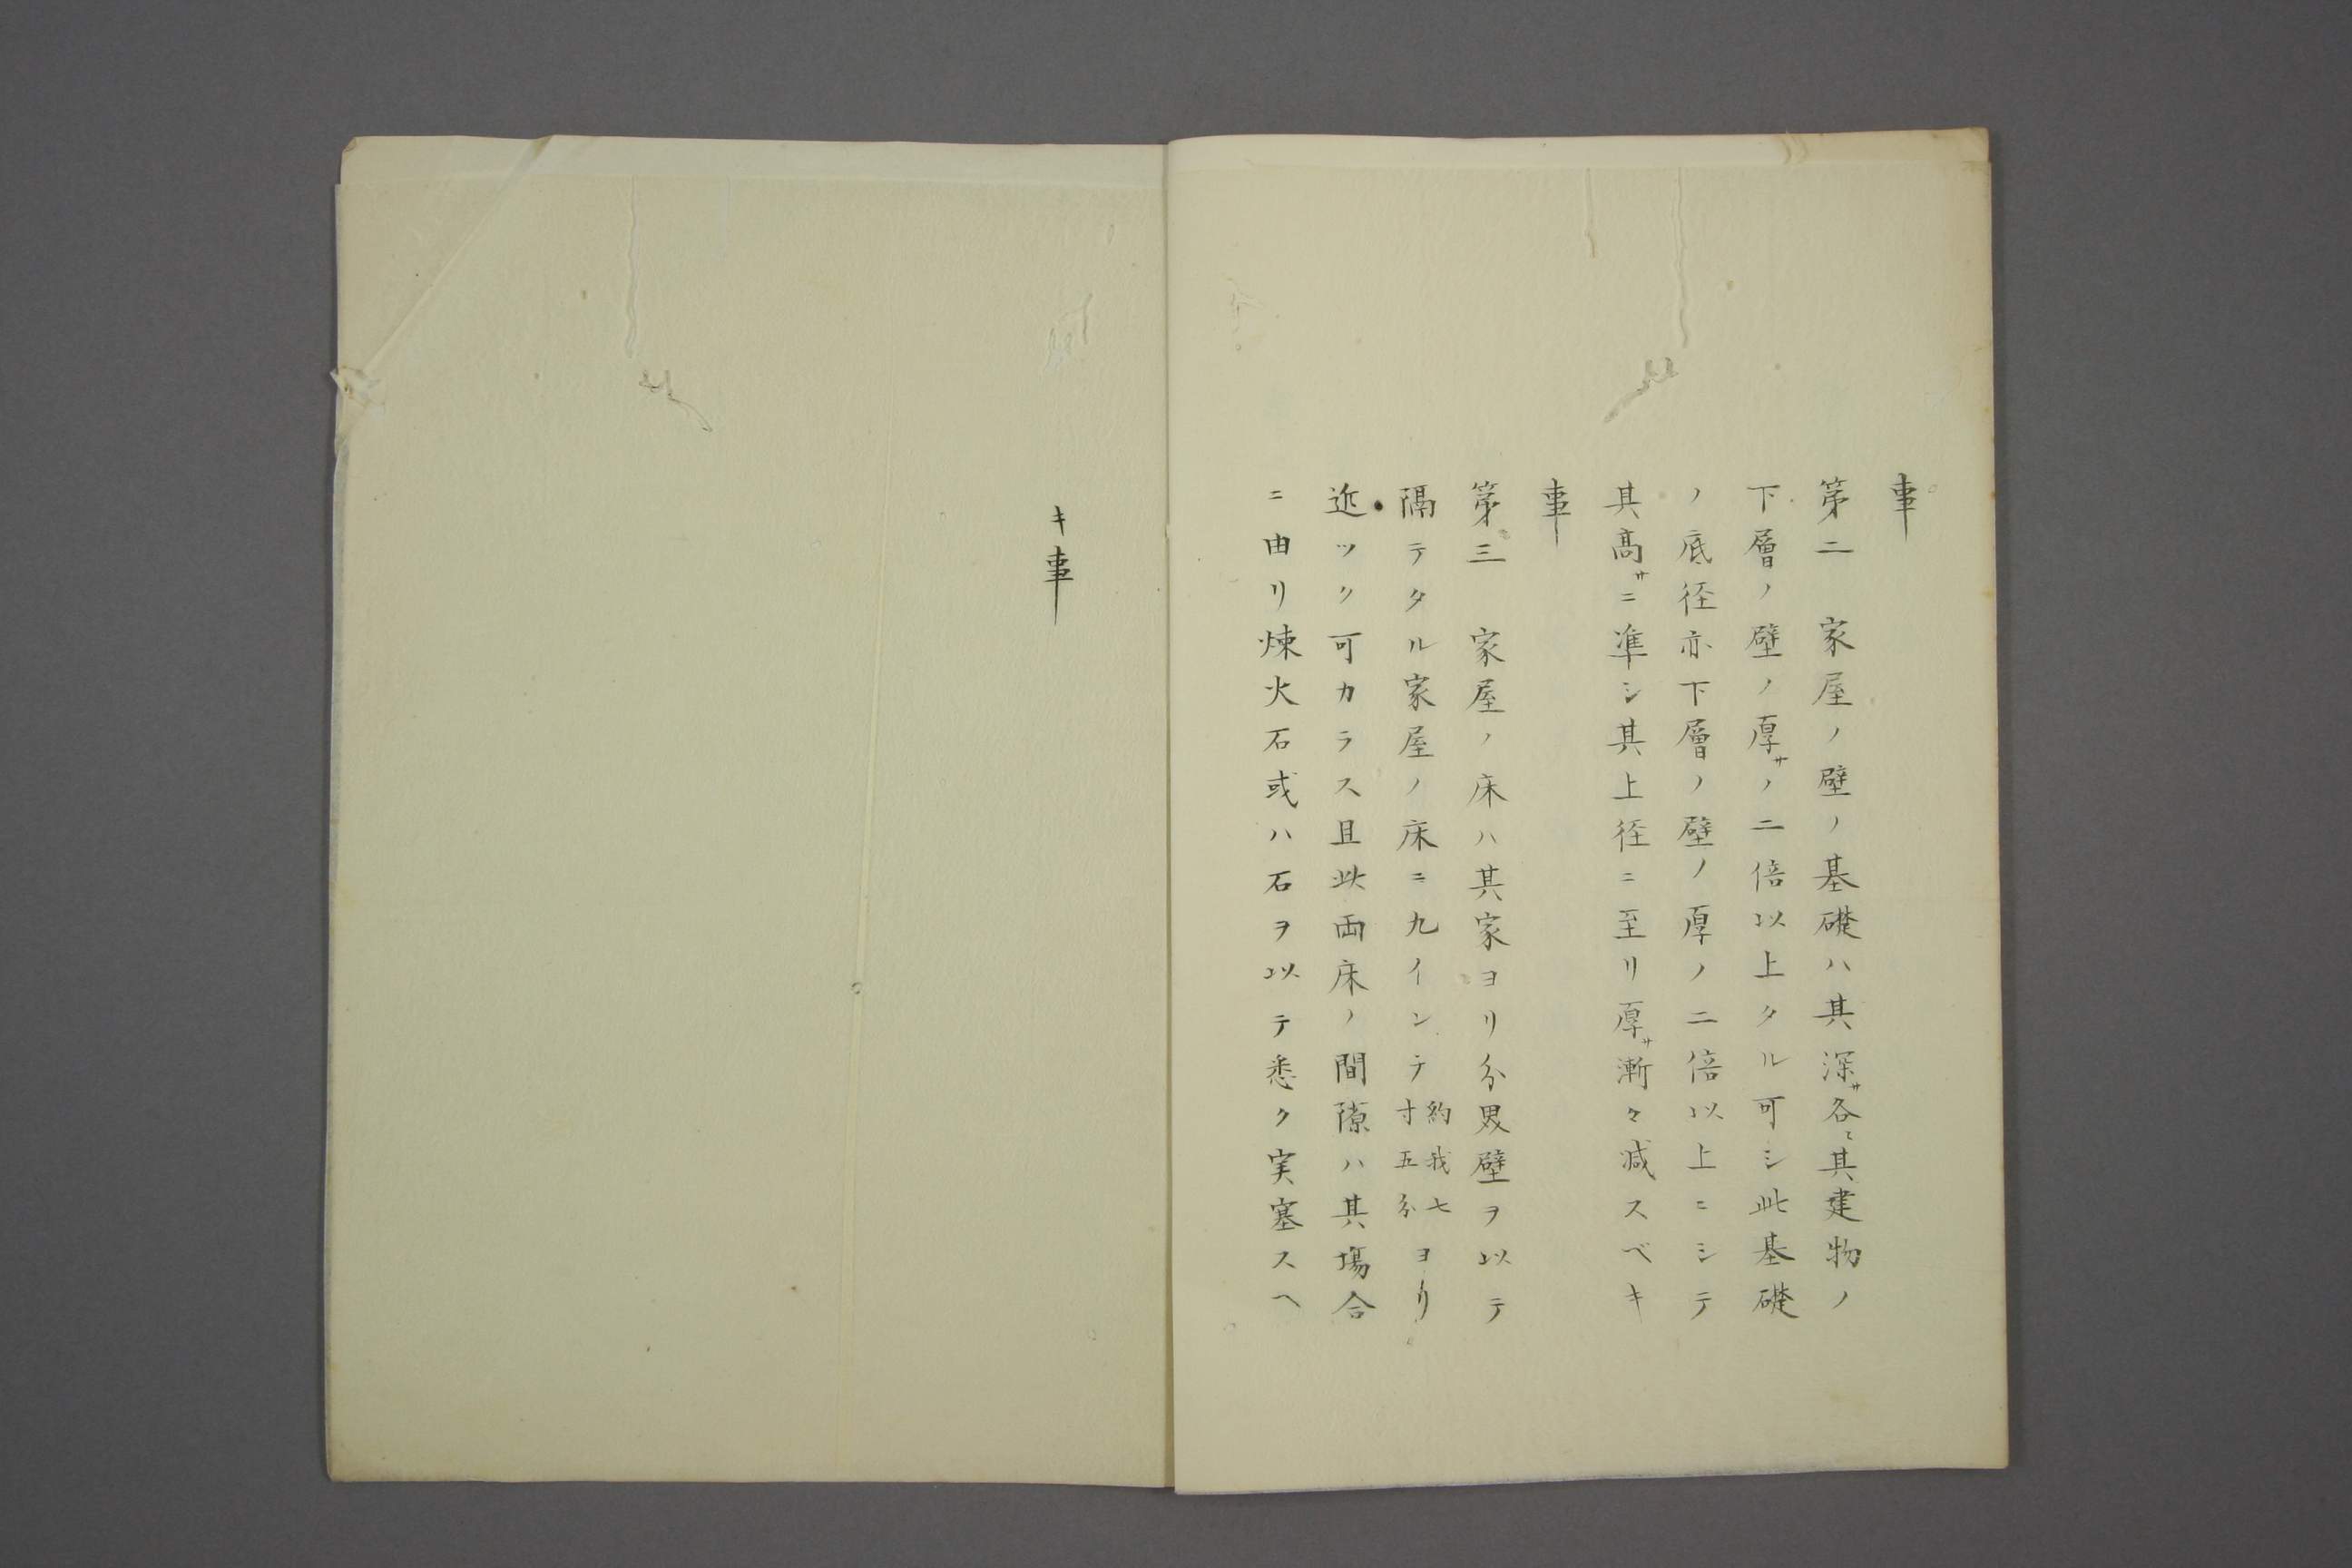 事
第二　家屋ノ壁ノ基礎ハ其深サ各〻其建物ノ
下層ノ壁ノ厚サノ二倍以上タル可シ此基礎
ノ底径亦下層ノ壁ノ厚ノ二倍以上ニシテ
其高サニ準シ其上径ニ至リ厚サ漸々减スベキ
事
第三　家屋ノ床ハ其家ヨリ分界壁ヲ以テ
隔テタル家屋ノ床ニ九インチ約我七寸五分ヨリ
近ツク可カラス且此両床ノ間隙ハ其場合
ニ由リ煉火石或ハ石ヲ以テ悉ク実塞スヘ
キ事